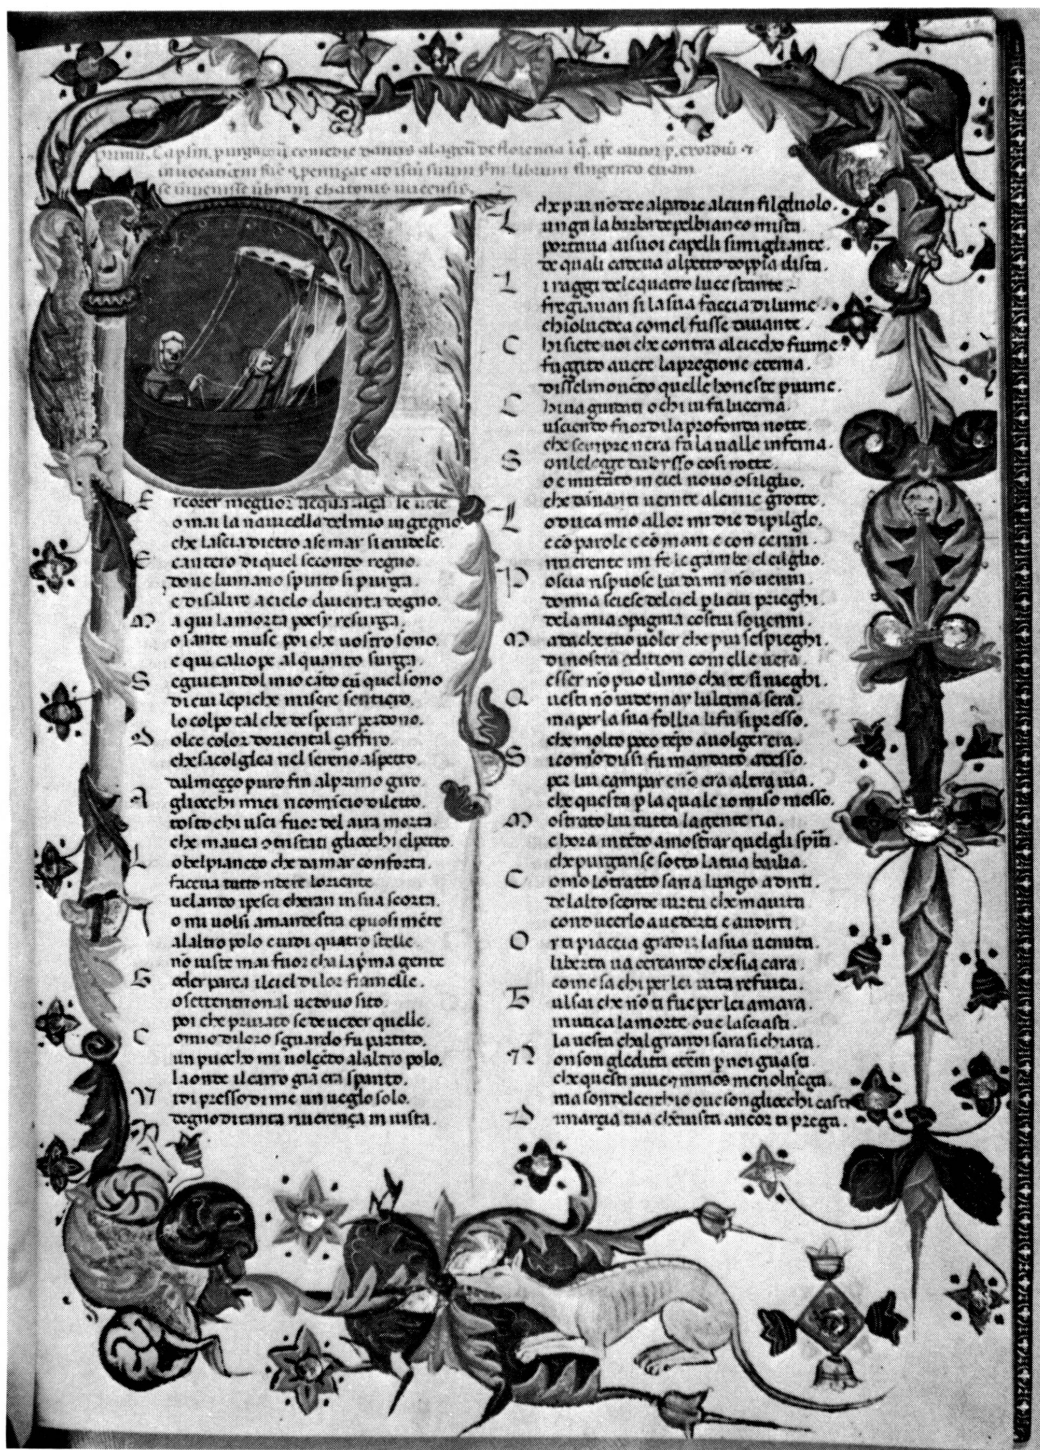 comedie dantis
P
E rcorer meglior acqua alça le uele
o mai la nauicella del mio ingegno
che lascia dietro a se mar si crudele.
E cantero di quel secondo regno.
doue lumano spirito si purga.
e di salire acielo diuenta degno.
M a qui la morta poesy resurga.
o sante muse poi che uostro sono.
e qui caliope alquanto surga.
S eguitando l mio cãto cũ quel sono
di cui le piche misere sentiero.
lo colpo tal che desperar perdono.
D olce color doriental çaffiro.
che sacoglea nel sereno aspetto.
dal meçço puro fin al primo giro.
A gliocchi miei ricomicio diletto.
tosto chi usci fuor del aura morta.
che mauea contristati gliocchi elpetto.
L o bel pianeto che damar conforta.
faceua tutto ridere loriente
uelando i pesci cheran in sua scorta.
I o mi uolsi amandestra e puosi mẽte
alaltro polo e uidi quatro stelle.
nõ uiste mai fuor cha la pṛma gente
G oder parea il ciel di lor fiamelle.
o settentrional uedouo sito.
poi che priuato se de ueder quelle.
C omio di loro sguardo fu partito.
un pucho mi uolgẽdo alaltro polo.
la onde il carro gia era sparito.
V idi presso di me un ueglo solo.
degno di tanta riuerença in uista.
che piu nõ dee al padre alcun filgluolo.
L unga la barba e de pel bianco mista
portaua ai suoi capelli simigliante.
de quali cadeua al petto doppia lista.
L i raggi dele quatro luce sante.
fregiauan si la sua faccia di lume.
chio luedea comel fusse dauante.
C hi siete uoi che contra al cieco fiume
fuggito auete la pregione eterna.
diss el mouẽdo quelle honeste piume.
C hi ua guidati o chi ui fu lucerna.
usciendo fuor dila profonda notte.
che sempre nera fa la ualle inferna.
S on le legge dabysso cosi rotte.
o e mutato in ciel nouo cõsiglio.
che dannati uenite ale mie grotte.
L o duca mio allor mi die di piglio.
e cõ parole e cõ mani e con cenni.
riuerente mi fe le gambe el ciglio.
P oscia rispuose lui da mi nõ uenni.
donna sciese del ciel p licui prieghi.
dela mia cõpagnia costui souenni.
M a da che tuo uoler che piu se spieghi.
di nostra condition com elle uera.
esser nõ puo il mio cha te si nieghi.
Q uesti nõ uide mai lultima sera.
ma per la sua follia li fu si presso.
che molto poco tẽpo a uolger era.
S i como dissi fu mandato ad esso.
per lui campar e nõ era altra uia.
che questa p la quale io miso messo.
M ostrato o lui tutta la gente ria.
e hora intẽdo amostrar quegli spirti.
che purganse sotto la tua bailia.
C omo lo tratto saria lungo a dirti.
de lalto scende uirtu che maiuta
conducerlo a uederti e audirti.
O r ti piaccia gradir la sua uenuta.
liberta ua cercando che si a cara.
come sa chi per lei uita refiuta.
T u l sai che nõ ti fue per lei amara.
in utica la morte oue lasciasti.
la uesta chal gran di sara si chiara.
N on son gleditti etẽrni p noi guasti
che questi uiue e minos me non lega.
ma son del cerchio oue son gliocchi casti
D i marçia tua che in uista ancor ti prega.